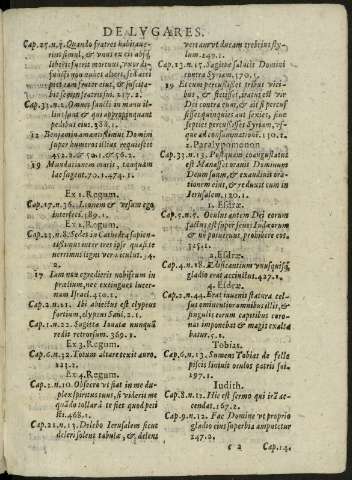 DE LVGARES.
Cap.25.n.5. Quando fratres habitaue-
rint simul, & vnus ex eis absq;
liberis fuerit mortuus, vxor di-
functi non nubet alteri, sed acci
piet eam frater eius, & suscita-
bit semen fratris sui. 217.2.
Cap.33.n.2. Omnes sancti in manu il-
lius sunt & qui appropinquant
pedibus eius. 388.1.
12 Beniamin amantissimus Domini
super humeros illius requiescet
452.2. & 501. & 562.2.
19 Inundationem maris, tanquam
lac sugent. 70.1. 474.1.
Ex 1. Regum.
Cap.17.n.36. Leonem & vrsum ego
interfeci. 189.1.
Ex 2. Regum.
Cap.23.n.8. Sedet in Cathedra sapien-
tissimus inter tres ipse quasi te
nerrimus ligni vermiculus. 34.
2.
17 Iam non egredieris nobiscum in
prælium, nec extinguas lucer-
nam Israel. 410.1.
Cap.2.n.21. Ibi abiectus est clypeus
fortium, clypeus Saul, 2.1.
Cap.1.n.22. Sagitta Ionatæ nunquã
redijt retrorsum. 369.1.
Ex 3. Regum.
Cap.6.n.32. Totum altare texit auro.
123.1.
Ex 4. Regum.
Cap.2.n.10. Obsecro vt fiat in me du-
plex spiritus tuus, si videris me
quãdo tollar à te fiet quod peti
sti. 468.1.
Cap.21.n.13. Delebo Ierusalem sicut
deleri solent tabulæ, & delens
vertam vt ducam crebrius sty-
lum. 249.1.
Cap.13.n.15. Sagitta salutis Domini
contra Syriam. 170.1.
19 Et cum percussisset tribus vici-
bus, & stetisset, iratus est vir
Dei contra eum, & ait si percus
sisses quinquies aut sexies, siue
septies percussisses Syriam, vs-
que ad consumationem. 130.2.
2. Paralypomenon
Cap.33.n.13. Postquam coangustatus
est Manasses orauit Dominum
Deum suum, & exaudiuit ora-
tionem eius, & reduxit eum in
Ierusalem. 120.1.
1. Esdræ.
Cap.5.n.5. Oculus autem Dei eorum
factus est super senes Iudæorum
& nõ potuerunt prohibere eos.
325.1.
2. Esdræ.
Cap.4.n.18. Ædificantium vnusquisq;
gladio erat accinctus. 427.1.
4. Esdræ.
Cap.2.n.44. Erat iuuenis statura cel-
sus eminentior omnibus illis, &
singulis eorum capitibus coro-
nas imponebat & magis exalta
batur. 5.1.
Tobias.
Cap.6.n.13. Sumens Tobias de felle
piscis liniuit oculos patris sui.
197.1.
Iudith.
Cap.8.n.12. Hic est sermo qui ira ac-
cendat. 167.2.
Cap.9.n.12. Fac Domine vt proprio
gladio eius superbia amputetur
247.2.
Cap.14.